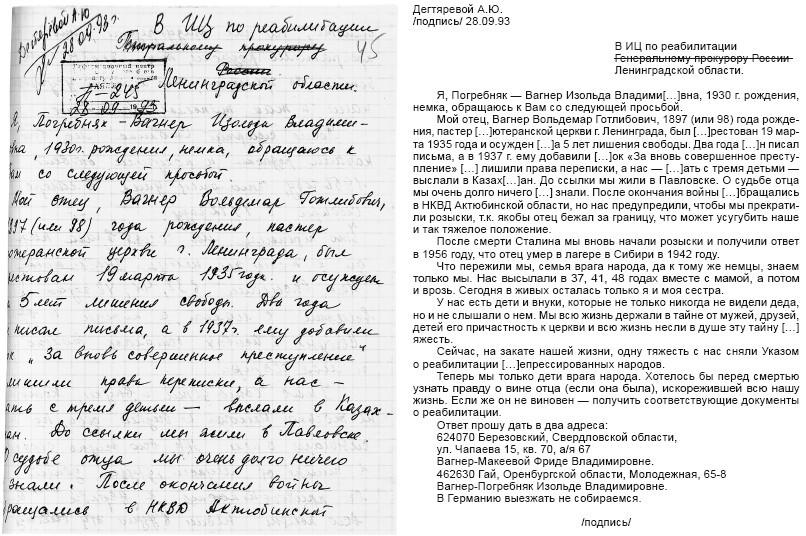 Дегтяревой А.Ю.
28.09.93г.
45
В ИЦ по реабилитации
Генеральному прокурору
России
Ленинградской области.
245
28 09 1993
Я, Погребняк – Вагнер Изольда Владими-
вна, 1930г. рождения, немка, обращаюсь к
ам со следующей просьбой.
Мой отец, Вагнер Вольдемар Готлибович,
897 (или 98) года рождения, пастер
ютеранской церкви г. Ленинграда, был
рестован 19 марта 1935 года и осужден
а 5 лет лишения свободы. Два года
н писал письма, а в 1937г. ему добавили
ок „За вновь совершенное преступление“
лишили права переписки, а нас –
ать с тремя детьми — выслали в Казах-
ан. До ссылки мы жили в Павловске.
О судьбе отца мы очень долго ничего
знали. После окончания войны
бращались в НКВД Актюбинской
Дегтяревой А.Ю.
/подпись/ 28.09.93
В ИЦ по реабилитации
Генеральному прокурору России
Ленинградской области.
Я, Погребняк — Вагнер Изольда Владими[…]вна, 1930 г. рождения,
немка, обращаюсь к Вам со следующей просьбой.
Мой отец, Вагнер Вольдемар Готлибович, 1897 (или 98) года рожде-
ния, пастер […]ютеранской церкви г. Ленинграда, был […]рестован 19 мар-
та 1935 года и осужден […]а 5 лет лишения свободы. Два года […]н писал
письма, а в 1937 г. ему добавили […]ок «За вновь совершенное престу-
пление» […] лишили права переписки, а нас — […]ать с тремя детьми —
выслали в Казах[…]ан. До ссылки мы жили в Павловске. О судьбе отца
мы очень долго ничего […] знали. После окончания войны […]бращались
в НКВД Актюбинской области, но нас предупредили, чтобы мы прекрати-
ли розыски, т.к. якобы отец бежал за границу, что может усугубить наше
и так тяжелое положение.
После смерти Сталина мы вновь начали розыски и получили ответ
в 1956 году, что отец умер в лагере в Сибири в 1942 году.
Что пережили мы, семья врага народа, да к тому же немцы, знаем
только мы. Нас высылали в 37, 41, 48 годах вместе с мамой, а потом
и врозь. Сегодня в живых осталась только я и моя сестра.
У нас есть дети и внуки, которые не только никогда не видели деда,
но и не слышали о нем. Мы всю жизнь держали в тайне от мужей, друзей,
детей его причастность к церкви и всю жизнь несли в душе эту тайну […]
яжесть.
Сейчас, на закате нашей жизни, одну тяжесть с нас сняли Указом
о реабилитации […]епрессированных народов.
Теперь мы только дети врага народа. Хотелось бы перед смертью
узнать правду о вине отца (если она была), искорежившей всю нашу
жизнь. Если же он не виновен — получить соответствующие документы
о реабилитации.
Ответ прошу дать в два адреса:
624070 Березовский, Свердловской области,
ул. Чапаева 15, кв. 70, а/я 67
Вагнер-Макеевой Фриде Владимировне.
462630 Гай, Оренбургской области, Молодежная, 65-8
Вагнер-Погребняк Изольде Владимировне.
В Германию выезжать не собираемся.
/подпись/